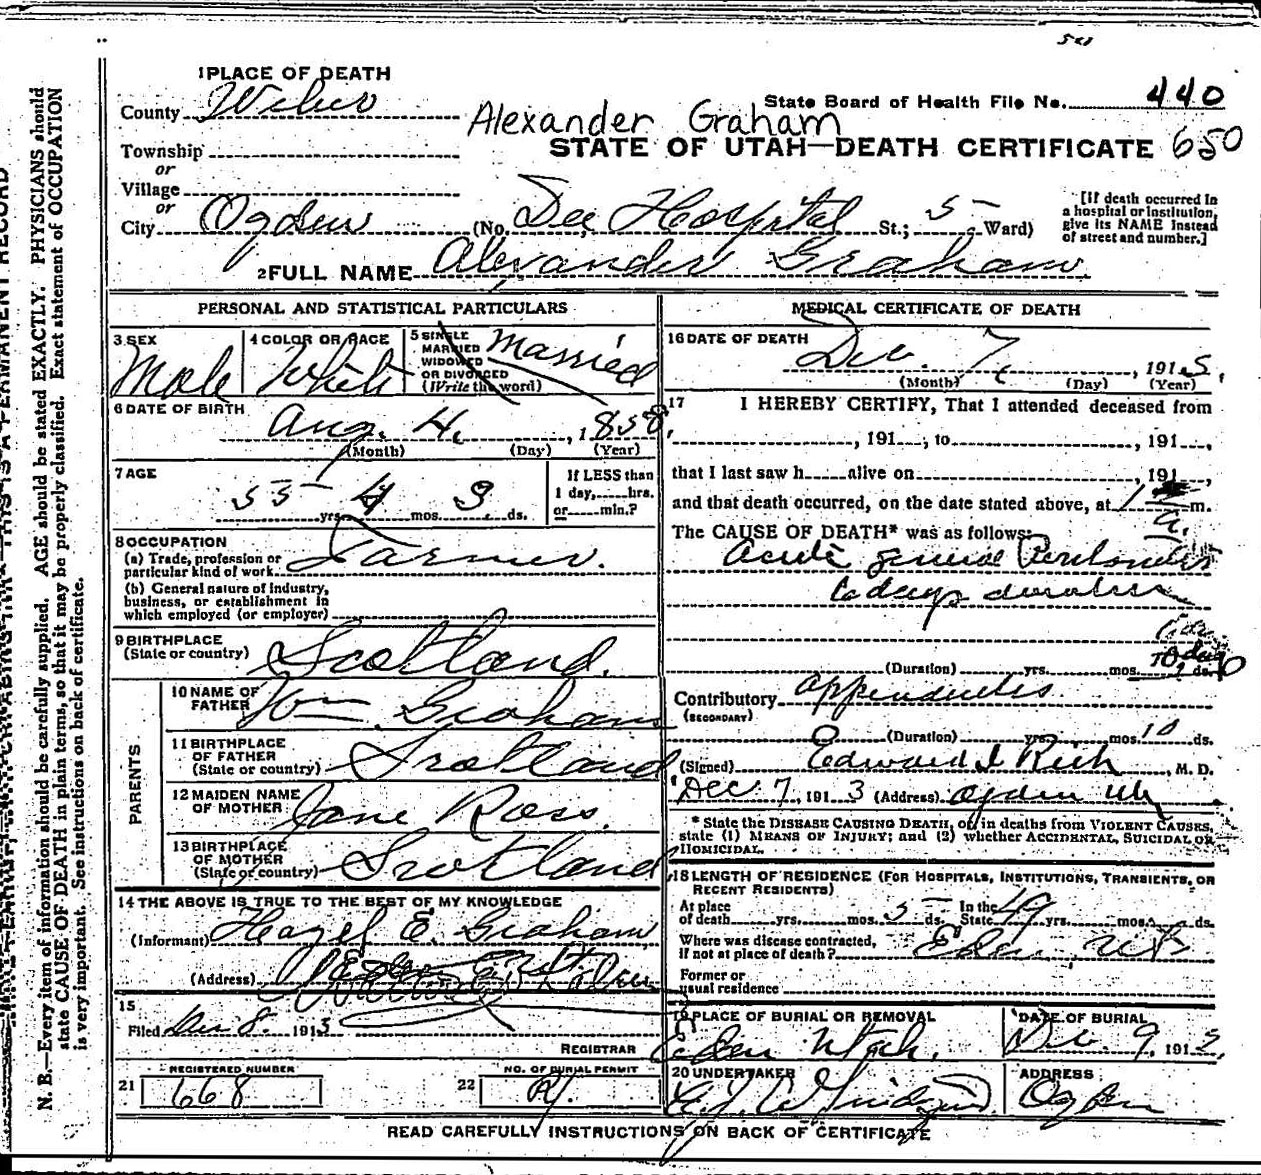 1 PLACE OF DEATH
County Weber
State Board of Health File No. 440
Alexander Graham
STATE OF UTAH—DEATH CERTIFICATE 650
Township
or
Village
or
City Ogden (No. Dee Hospital St.; 5 Ward)
[If death occurred in
a hospital or institution,
give its NAME instead
of street and number.]
2 FULL NAME Alexander Graham
PERSONAL AND STATISTICAL PARTICULARS
3 SEX
Male
4 COLOR OR RACE
White
5 SINGLE
MARRIED
WIDOWED
OR DIVORCED
(Write the word)
Married
6 DATE OF BIRTH
Aug. 4, 1858
(Month) (Day) (Year)
7 AGE
55 yrs. 4 mos. 3 ds.
If LESS than
1 day, hrs.
or min.?
8 OCCUPATION
(a) Trade, profession or
particular kind of work Farmer.
(b) General nature of industry,
business, or establishment in
which employed (or employer)
9 BIRTHPLACE
(State or country) Scotland.
PARENTS
10 NAME OF
FATHER Wm Graham
11 BIRTHPLACE
OF FATHER
(State or country) Scotland
12 MAIDEN NAME
OF MOTHER Jane Ross.
13 BIRTHPLACE
OF MOTHER
(State or country) Scotland
14 THE ABOVE IS TRUE TO THE BEST OF MY KNOWLEDGE
(Informant) Hazel E. Graham
(Address)
15
Filed Dec 8, 1913
REGISTRAR
21 REGISTERED NUMBER
668
22 NO. OF BURIAL PERMIT
MEDICAL CERTIFICATE OF DEATH
16 DATE OF DEATH
Dec. 7, 191
(Month) (Day) (Year)
17 I HEREBY CERTIFY, That I attended deceased from
, 191 , to , 191 ,
that I last saw h alive on , 191 ,
and that death occurred, on the date stated above, at 1 a. m.
The CAUSE OF DEATH* was as follows:
Acute general Peritonitis
(Duration) yrs. mos. 10 ds.
Contributory appendicitis
(SECONDARY)
(Duration) yrs. mos. 10 ds.
(Signed) Edward I Rich, M. D.
Dec 7, 1913 (Address) Ogden Utah
* State the DISEASE CAUSING DEATH, or, in deaths from VIOLENT CAUSES,
state (1) MEANS OF INJURY; and (2) whether ACCIDENTAL, SUICIDAL OR
HOMICIDAL.
18 LENGTH OF RESIDENCE (FOR HOSPITALS, INSTITUTIONS, TRANSIENTS, OR
RECENT RESIDENTS)
At place
of death yrs. mos. 5 ds. In the
State 49 yrs. mos. ds.
Where was disease contracted,
if not at place of death? Eden, Ut
Former or
usual residence
19 PLACE OF BURIAL OR REMOVAL
Eden Utah.
DATE OF BURIAL
Dec. 9, 191
20 UNDERTAKER
ADDRESS
Ogden
READ CAREFULLY INSTRUCTIONS ON BACK OF CERTIFICATE
N. B.—Every item of information should be carefully supplied. AGE should be stated EXACTLY. PHYSICIANS should
state CAUSE OF DEATH in plain terms, so that it may be properly classified. Exact statement of OCCUPATION
is very important. See instructions on back of certificate.